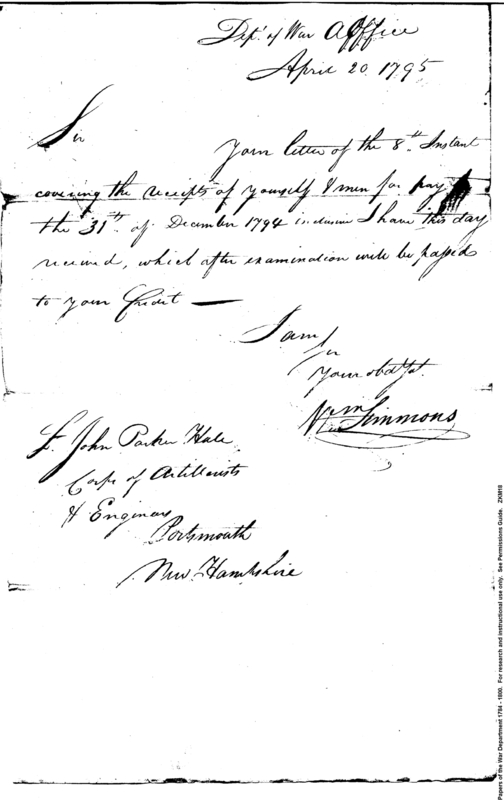 Dept. of War A Office
April 20 1795
Sir
Your letter of the 8th. Instant
covering the receipts of yourself & men for pay
the 31st of December 1794 inclusive I have this day
received, which after examination will be passed
to your Credit —
I am
Sir
Your obdt St.
Wm Simmons
Lt. John Parker Hale
Corps of Artillerists
& Engineers
Portsmouth
New Hampshire
Papers of the War Department 1784 - 1800. For research and instructional use only. See Permissions Guide. ZKM18